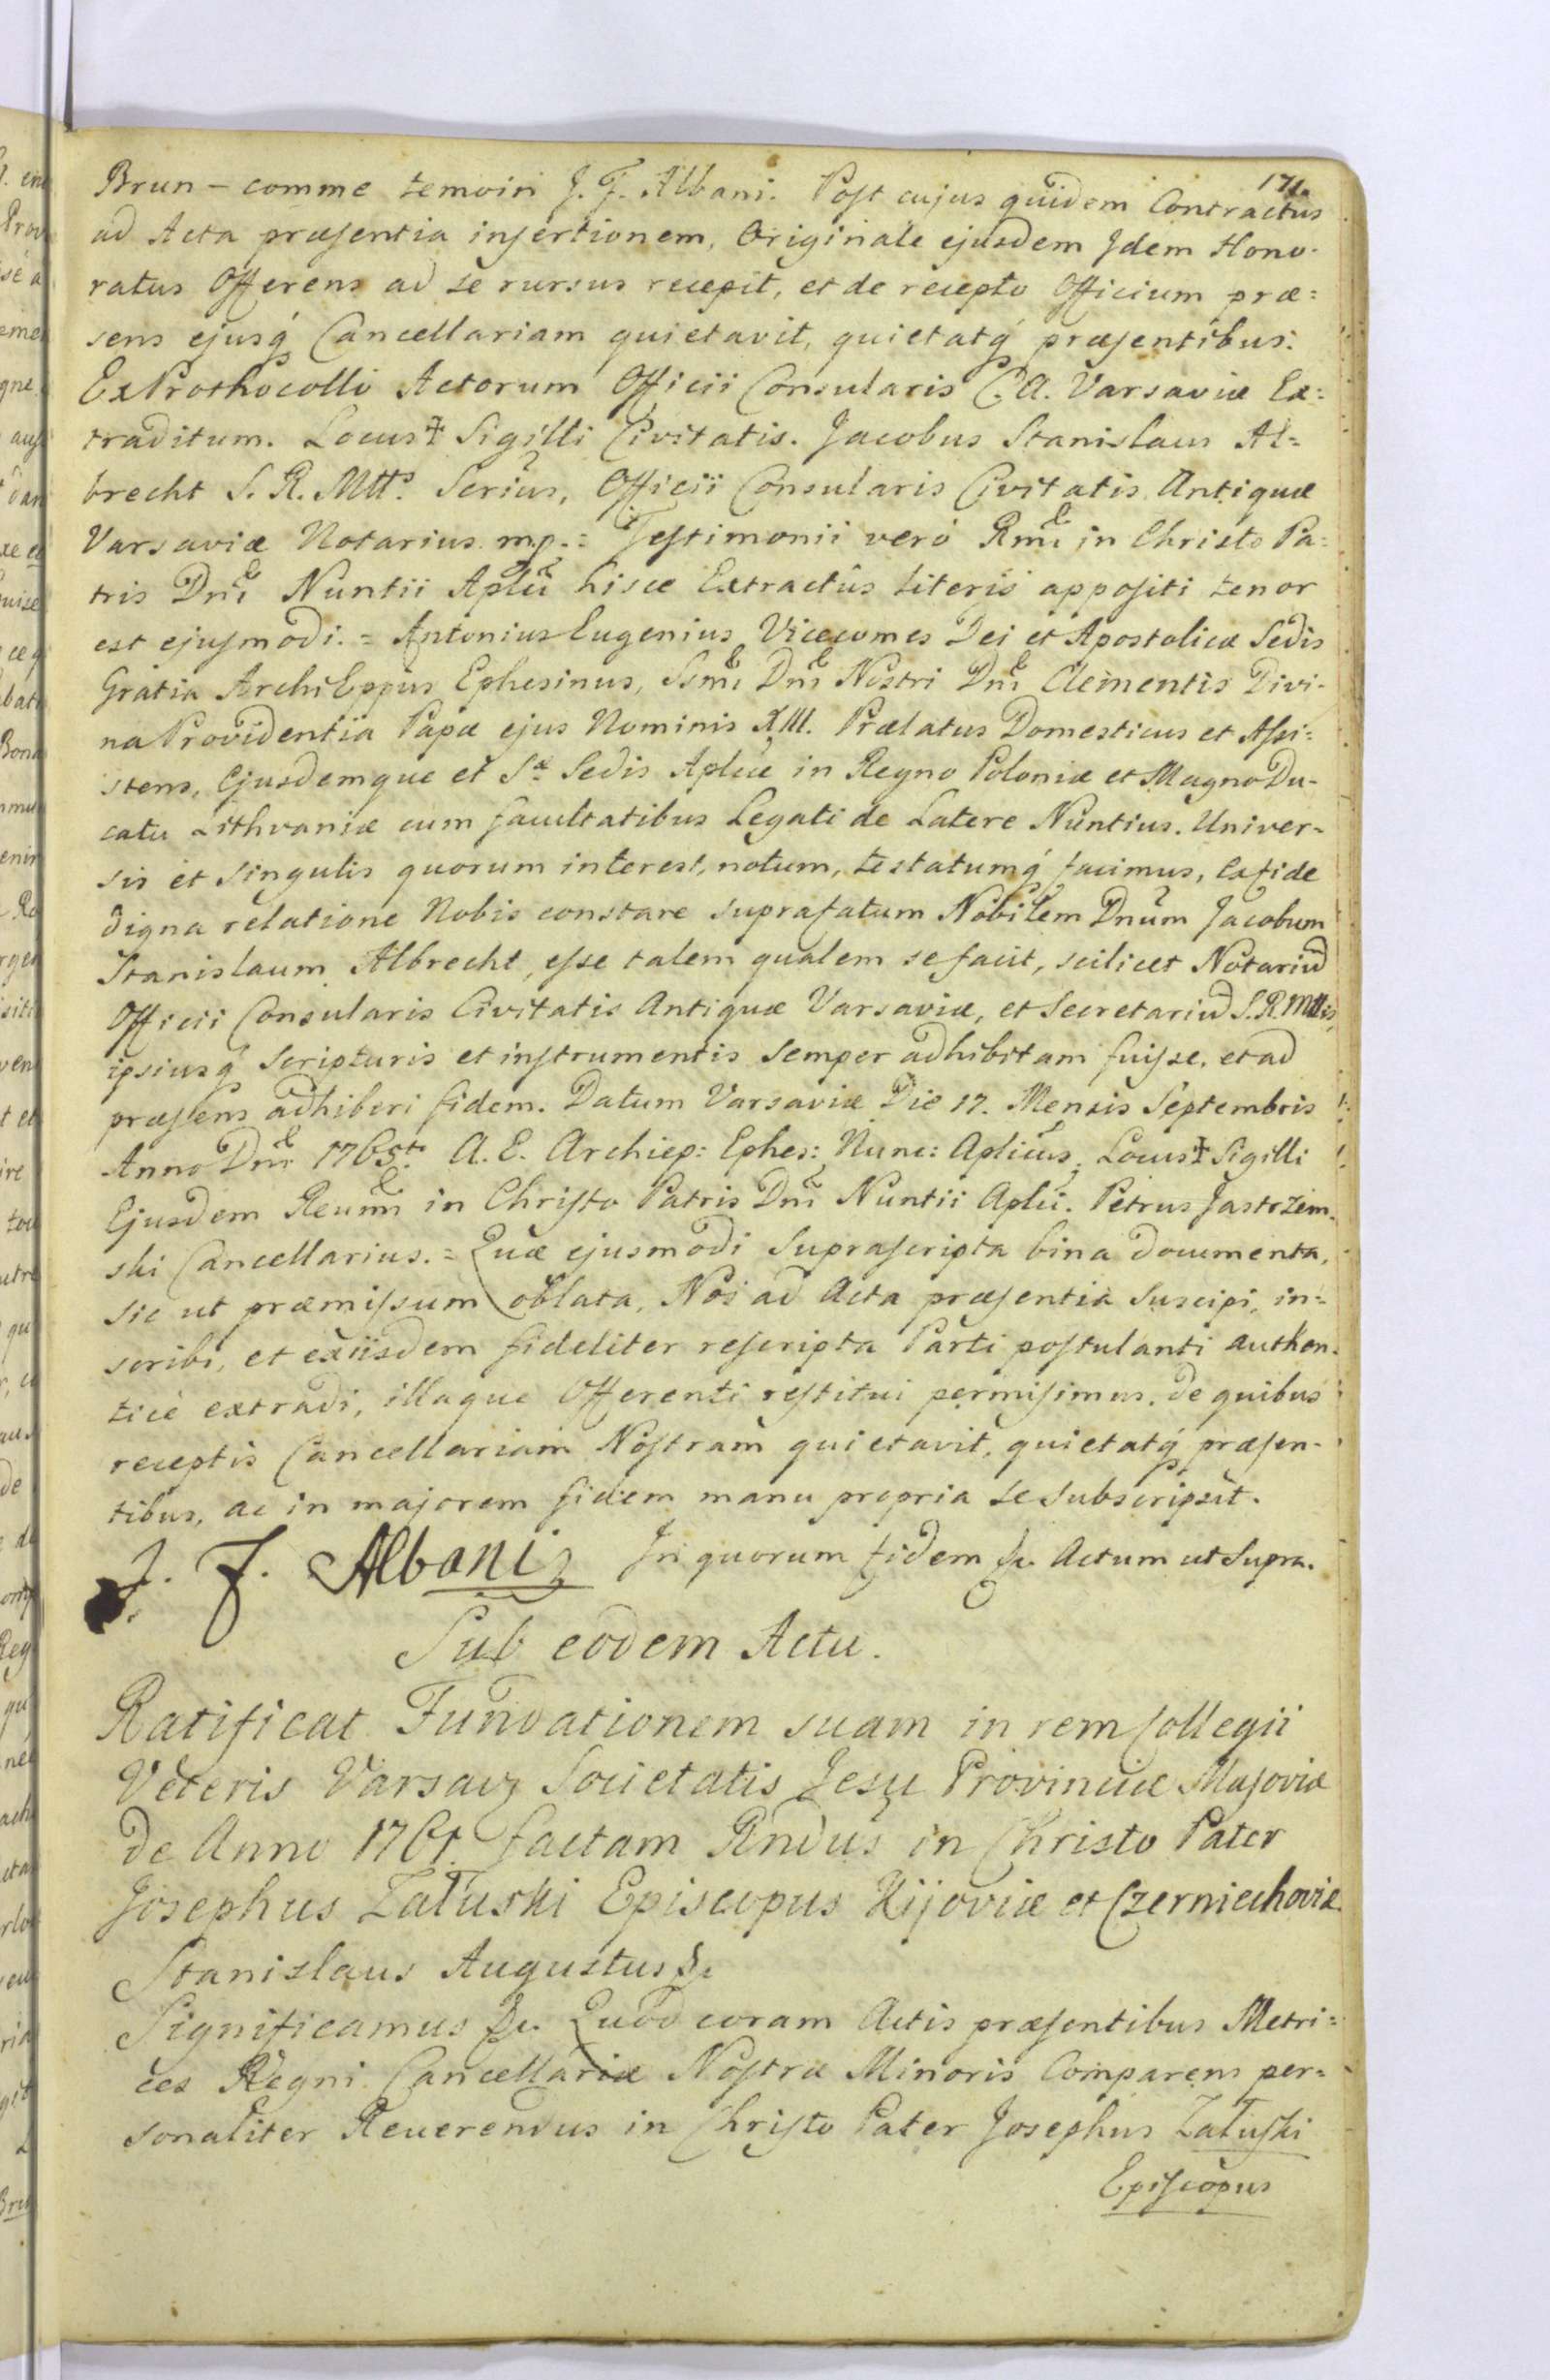 171.
Brun – comme temoin J. F. Albani. Post cujus quidem Contractus
ad Acta præsentia insertionem, Originale ejusdem Jdem Hono-
ratus Offerens ad se rursus recepit, et de recepto Officium præ=
sens ejusq́ Cancellariam quietavit, quietatq́ præsentibus.
Ex Prothocollo Actorum Officii Consularis C. A. Varsaviæ Ex=
traditum. Locus ‡ Sigilli Civitatis. Jacobus Stanislaus Al=
brecht S. R. Mttis Serius, Officii Consularis Civitatis Antiquæ
Varsaviæ Notarius mp. = Testimonii veró Rmi in Christo Pa=
tris Dni Nuntii Aplici hisce Extractûs literis appositi tenor
est ejusmodi. = Antonius Eugenius Vicecomes Dei et Apostolicæ Sedis
Gratia ArchiEppus Ephesinus, Ssmi Dni Nostri Dni Clementis Divi-
na Providentia Papæ ejus Nominis XIII. Prælatus Domesticus et Assi=
stens, Ejusdemque et Sæ Sedis Aplicæ in Regno Poloniæ et Magno Du-
catu Lithvaniæ cum facultatibus Legati de Latere Nuntius. Univer-
sis et singulis quorum interest, notum, testatumq́ facimus, ex fide
digna relatione Nobis constare suprafatum Nobilem Dnum Jacobum
Stanislaum Albrecht, esse talem qualem se facit, scilicet Notariū
Officii Consularis Civitatis Antiquæ Varsaviæ, et Secretariū S. R. Mttis,
ipsiusq́ Scripturis et instrumentis semper adhibitam fuisse, et ad
præsens adhiberi fidem. Datum Varsaviæ Die 17. Mensis Septembris
Anno Dni 1765to A. E. Archiep: Ephes: Nunc: Aplicus. Locus ‡ Sigilli
Ejusdem Reumi in Christo Patris Dni Nuntii Aplici. Petrus Jastrzem-
ski Cancellarius. = Quæ ejusmodi Suprascripta bina documenta,
sic ut præmissum oblata, Nos ad Acta præsentia Suscipi, in=
scribi, et exiisdem fideliter rescripta Parti postulanti authen-
ticè extradi, illaque Offerenti restitui permisimus, de quibus
receptis Cancellariam Nostram quietavit, quietatq́ præsen-
tibus, ac in majorem fidem manu propria se subscripsit.
J. F. Albani In quorum fidem &c. Actum ut Supra.
Sub eodem Actu.
Ratificat Fundationem suam in rem Collegii
Veteris Varsav; Societatis Jesu Provinciæ Masoviæ
de Anno 1761. factam Rndus in Christo Pater
Josephus Załuski Episcopus Kijoviæ et Czerniechoviæ.
Stanislaus Augustus &c.
Significamus &c. Quod coram Actis præsentibus Metri=
ces Regni Cancellariæ Nostræ Minoris Comparens per=
sonaliter Reuerendus in Christo Pater Josephus Załuski
Episcopus